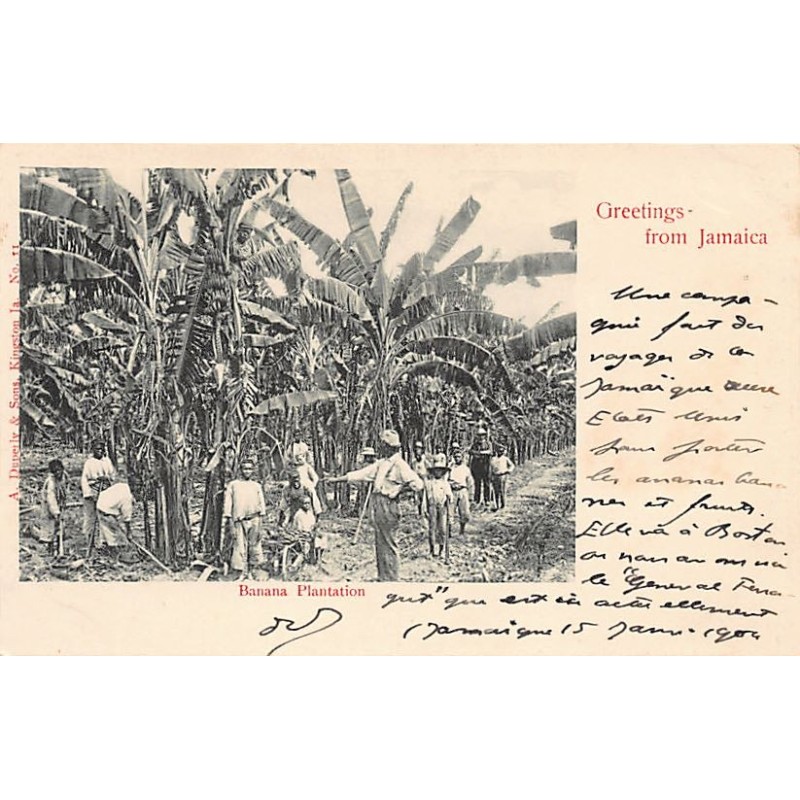 Greetings
from Jamaica
A. Duperly & Sons, Kingston Ja. No. 11
Banana Plantation
Une compa-
gnie fait des
voyages de la
Jamaïque aux
Etats Unis
pour porter
les ananas bana
nes et fruits.
Elle va à Boston
où nous avons vu
le "General
que est ici actuellement
(Jamaïque 15 Janv. 1904